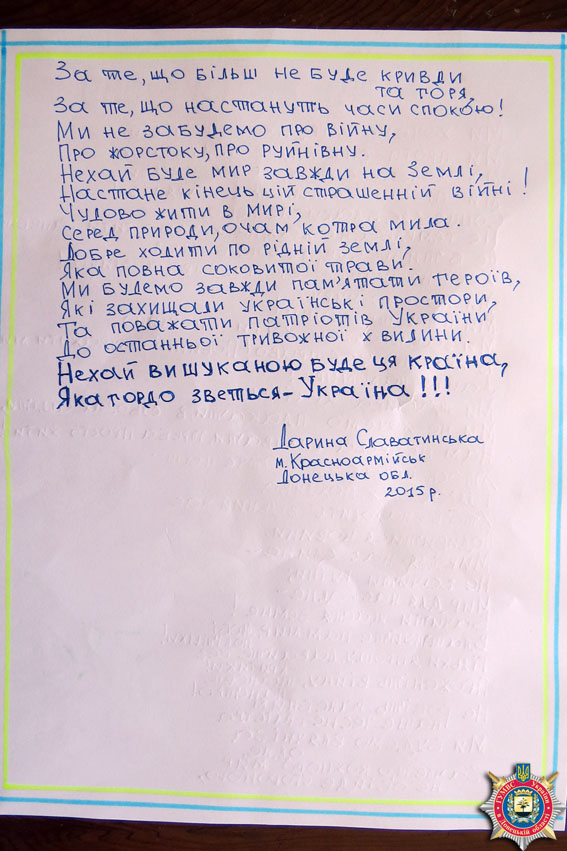 За те, що більш не буде кривди
та горя,
За те, що настануть часи спокою!
Ми не забудемо про війну,
Про жорстоку, про руйнівну.
Нехай буде мир завжди на Землі,
Настане кінець цій страшенній війні!
Чудово жити в мирі,
Серед природи, очам котра мила.
Добре ходити по рідній землі,
Яка повна соковитої трави.
Ми будемо завжди пам'ятати героїв,
Які захищали українські простори,
Та поважати патріотів України
До останньої тривожної хвилини.
Нехай вишуканою буде ця країна,
Яка гордо зветься - Україна!!!
Дарина Славатинська
м. Красноармійськ
Донецька обл.
2015 р.
ГУМВС України
в Донецькій області